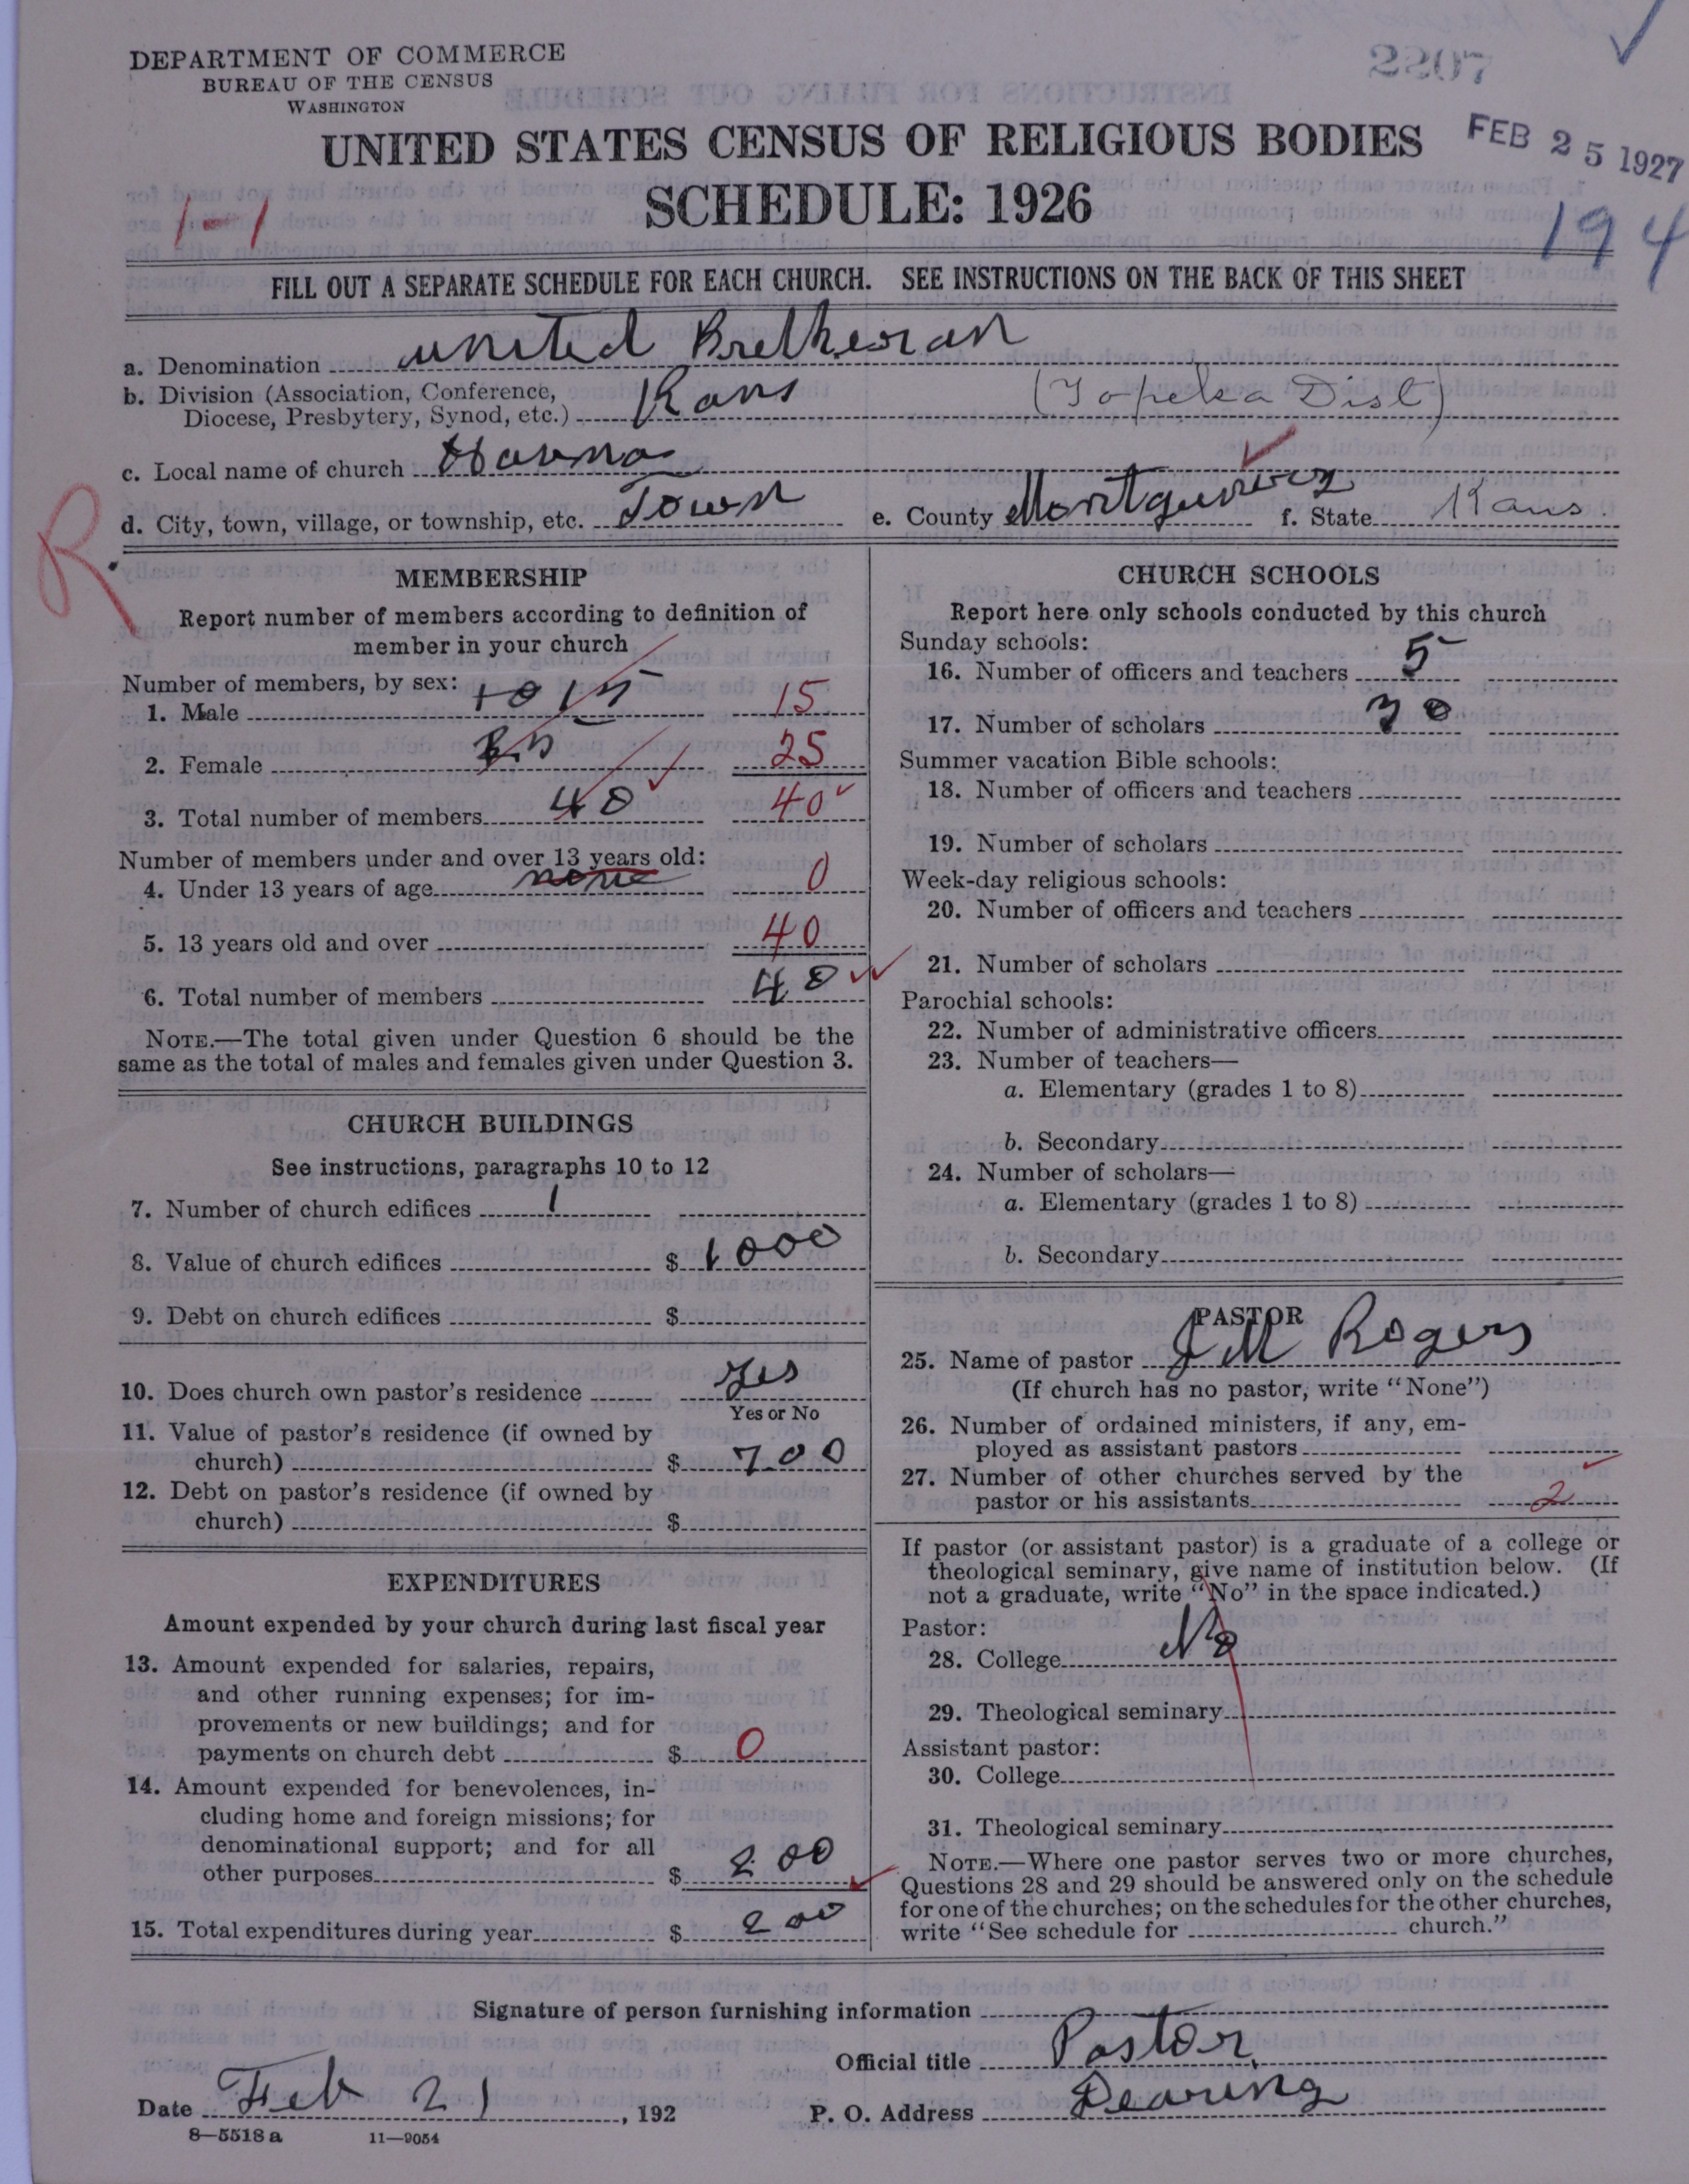 DEPARTMENT OF COMMERCE
BUREAU OF THE CENSUS
WASHINGTON
2207
UNITED STATES CENSUS OF RELIGIOUS BODIES
FEB 25 1927
SCHEDULE: 1926
1-1
194
FILL OUT A SEPARATE SCHEDULE FOR EACH CHURCH. SEE INSTRUCTIONS ON THE BACK OF THIS SHEET
a. Denomination United Bretheran
b. Division (Association, Conference,
Diocese, Presbytery, Synod, etc.) Kans (Topeka Dist)
c. Local name of church
d. City, town, village, or township, etc. Town e. County f. State Kans.
R
MEMBERSHIP
Report number of members according to definition of
member in your church
Number of members, by sex:
1. Male 15 15
2. Female 25 25
3. Total number of members 40 40
Number of members under and over 13 years old:
4. Under 13 years of age none 0
5. 13 years old and over 40
6. Total number of members 40
NOTE.—The total given under Question 6 should be the
same as the total of males and females given under Question 3.
CHURCH BUILDINGS
See instructions, paragraphs 10 to 12
7. Number of church edifices 1
8. Value of church edifices $ 1000
9. Debt on church edifices $
10. Does church own pastor's residence yes
Yes or No
11. Value of pastor's residence (if owned by
church) $ 700
12. Debt on pastor's residence (if owned by
church) $
EXPENDITURES
Amount expended by your church during last fiscal year
13. Amount expended for salaries, repairs,
and other running expenses; for im-
provements or new buildings; and for
payments on church debt $ 0
14. Amount expended for benevolences, in-
cluding home and foreign missions; for
denominational support; and for all
other purposes $ 200
15. Total expenditures during year $ 200
CHURCH SCHOOLS
Report here only schools conducted by this church
Sunday schools:
16. Number of officers and teachers 5
17. Number of scholars 30
Summer vacation Bible schools:
18. Number of officers and teachers
19. Number of scholars
Week-day religious schools:
20. Number of officers and teachers
21. Number of scholars
Parochial schools:
22. Number of administrative officers
23. Number of teachers—
a. Elementary (grades 1 to 8)
b. Secondary
24. Number of scholars—
a. Elementary (grades 1 to 8)
b. Secondary
PASTOR
25. Name of pastor J M Rogers
(If church has no pastor, write "None")
26. Number of ordained ministers, if any, em-
ployed as assistant pastors
27. Number of other churches served by the
pastor or his assistants 2
If pastor (or assistant pastor) is a graduate of a college or
theological seminary, give name of institution below. (If
not a graduate, write "No" in the space indicated.)
Pastor:
28. College No
29. Theological seminary
Assistant pastor:
30. College
31. Theological seminary
NOTE.—Where one pastor serves two or more churches,
Questions 28 and 29 should be answered only on the schedule
for one of the churches; on the schedules for the other churches,
write "See schedule for church."
Signature of person furnishing information
Official title Pastor
Date Feb 21, 192 P. O. Address Dearing
8—5518 a 11—9054